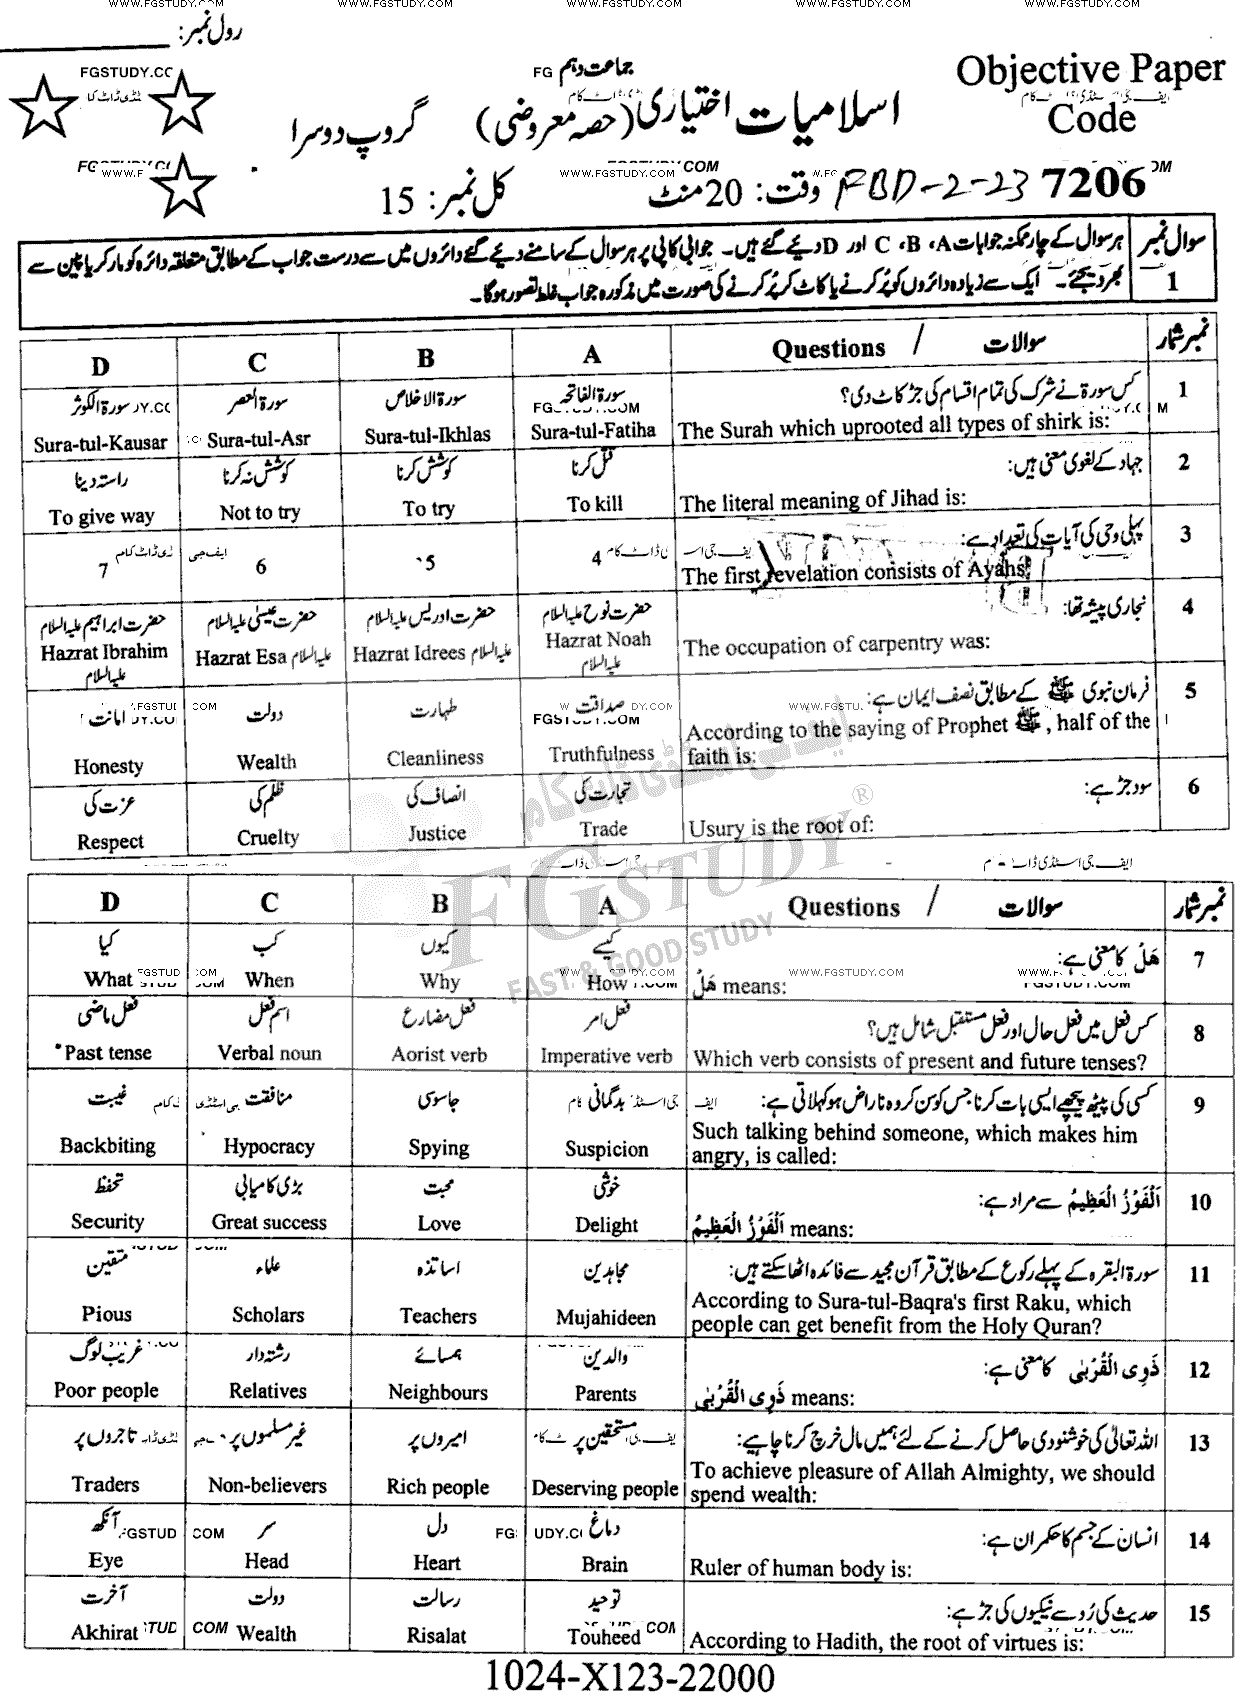 WWW.FGSTUDY.COM WWW.FGSTUDY.COM WWW.FGSTUDY.COM WWW.FGSTUDY.COM WWW.FGSTUDY.COM
رول نمبر:
FGSTUDY.CO FG جماعت دہم Objective Paper
اسلامیات اختیاری (حصہ معروضی) گروپ دوسرا
Code
WWW.FGSTUDY.COM
7206 FBD-2-23 وقت: 20 منٹ کل نمبر: 15
سوال نمبر 1
ہر سوال کے چار ممکنہ جوابات A، B، C اور D دیئے گئے ہیں۔ جوابی کاپی پر ہر سوال کے سامنے دیئے گئے دائروں میں سے درست جواب کے مطابق متعلقہ دائرہ کو مارکر یا پین سے
بھر دیجئے۔ ایک سے زیادہ دائروں کو پُر کرنے یا کاٹ کر پُر کرنے کی صورت میں مذکورہ جواب غلط تصور ہوگا۔
D C B A Questions / سوالات نمبر شمار
1 کس سورۃ نے شرک کی تمام اقسام کی جڑ کاٹ دی؟
سورۃ الفاتحہ سورۃ الاخلاص سورۃ العصر سورۃ الکوثر
Sura-tul-Kausar Sura-tul-Asr Sura-tul-Ikhlas Sura-tul-Fatiha The Surah which uprooted all types of shirk is:
2 جہاد کے لغوی معنی ہیں:
قتل کرنا کوشش کرنا کوشش نہ کرنا راستہ دینا
To give way Not to try To try To kill The literal meaning of Jihad is:
3 پہلی وحی کی آیات کی تعداد ہے:
7 6 5 4 The first revelation consists of Ayahs:
4 نجاری پیشہ تھا:
حضرت نوح علیہ السلام حضرت ادریس علیہ السلام حضرت عیسیٰ علیہ السلام حضرت ابراہیم علیہ السلام
Hazrat Ibrahim علیہ السلام Hazrat Esa علیہ السلام Hazrat Idrees علیہ السلام Hazrat Noah علیہ السلام The occupation of carpentry was:
5 فرمان نبوی ﷺ کے مطابق نصف ایمان ہے:
صداقت طہارت دولت امانت
Honesty Wealth Cleanliness Truthfulness According to the saying of Prophet ﷺ, half of the
faith is:
6 سود جڑ ہے:
تجارت کی انصاف کی ظلم کی عزت کی
Respect Cruelty Justice Trade Usury is the root of:
FGSTUDY®
FAST & GOOD STUDY
ایف جی اسٹڈی ڈاٹ کام
D C B A Questions / سوالات نمبر شمار
7 هَلْ کا معنی ہے:
کیسے کیوں کب کیا
What When Why How هَلْ means:
8 کس فعل میں فعل حال اور فعل مستقبل شامل ہیں؟
فعل امر فعل مضارع اسم فعل فعل ماضی
Past tense Verbal noun Aorist verb Imperative verb Which verb consists of present and future tenses?
9 کسی کی پیٹھ پیچھے ایسی بات کرنا جس کو سن کر وہ ناراض ہو کہلاتی ہے:
بدگمانی جاسوسی منافقت غیبت
Backbiting Hypocracy Spying Suspicion Such talking behind someone, which makes him
angry, is called:
10 اَلْفَوْزُ الْعَظِيْمُ سے مراد ہے:
خوشی محبت بڑی کامیابی تحفظ
Security Great success Love Delight اَلْفَوْزُ الْعَظِيْمُ means:
11 سورۃ البقرہ کے پہلے رکوع کے مطابق قرآن مجید سے فائدہ اٹھا سکتے ہیں:
مجاہدین اساتذہ علماء متقین
Pious Scholars Teachers Mujahideen According to Sura-tul-Baqra's first Raku, which
people can get benefit from the Holy Quran?
12 ذَوِی الْقُرْبٰی کا معنی ہے:
والدین ہمسائے رشتہ دار غریب لوگ
Poor people Relatives Neighbours Parents ذَوِی الْقُرْبٰی means:
13 اللہ تعالیٰ کی خوشنودی حاصل کرنے کے لئے ہمیں مال خرچ کرنا چاہیے:
مستحقین پر امیروں پر غیر مسلموں پر تاجروں پر
Traders Non-believers Rich people Deserving people To achieve pleasure of Allah Almighty, we should
spend wealth:
14 انسان کے جسم کا حکمران ہے:
دماغ دل سر آنکھ
Eye Head Heart Brain Ruler of human body is:
15 حدیث کی رُو سے نیکیوں کی جڑ ہے:
توحید رسالت دولت آخرت
Akhirat Wealth Risalat Touheed According to Hadith, the root of virtues is:
1024-X123-22000